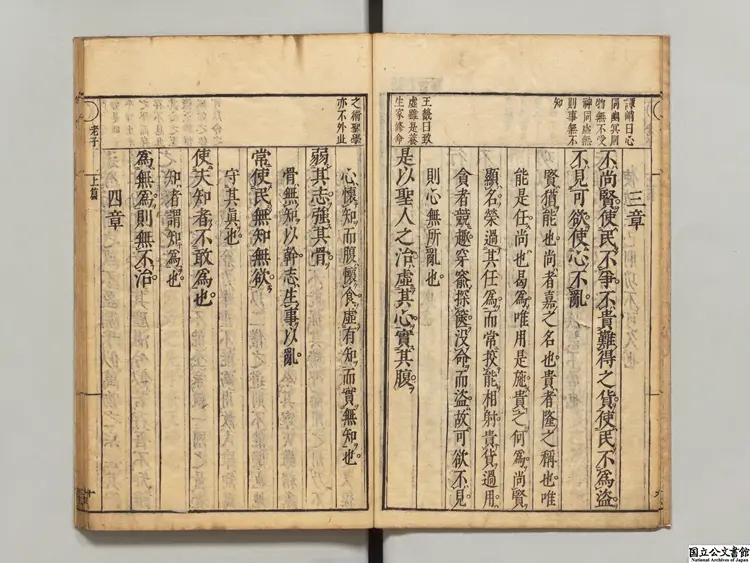 譚峭曰心
同幽冥則
物無不受
神同虛無
則事無不
知
三章
不尚賢使民不爭不貴難得之貨使民不爲盜
不見可欲使心不亂
賢猶能也尚者嘉之名也貴者隆之稱也唯
能是任尚也曷爲唯用是施貴之何爲尚賢
顯名榮過其任爲而常挍能相射貴貨過用
貪者競趣穿窬探篋没命而盜故可欲不見
則心無所亂也
王曰致
虛雖是養
生家修命
是以聖人之治虛其心實其腹
之術聖學
亦不外此
心懷知而腹懷食虛有知而實無知也
弱其志強其骨
骨無知以幹志生事以亂
常使民無知無欲
守其眞也
使夫知者不敢爲也
知者謂知爲也
爲無爲則無不治
四章
老子 上篇
国立公文書館
National Archives of Japan